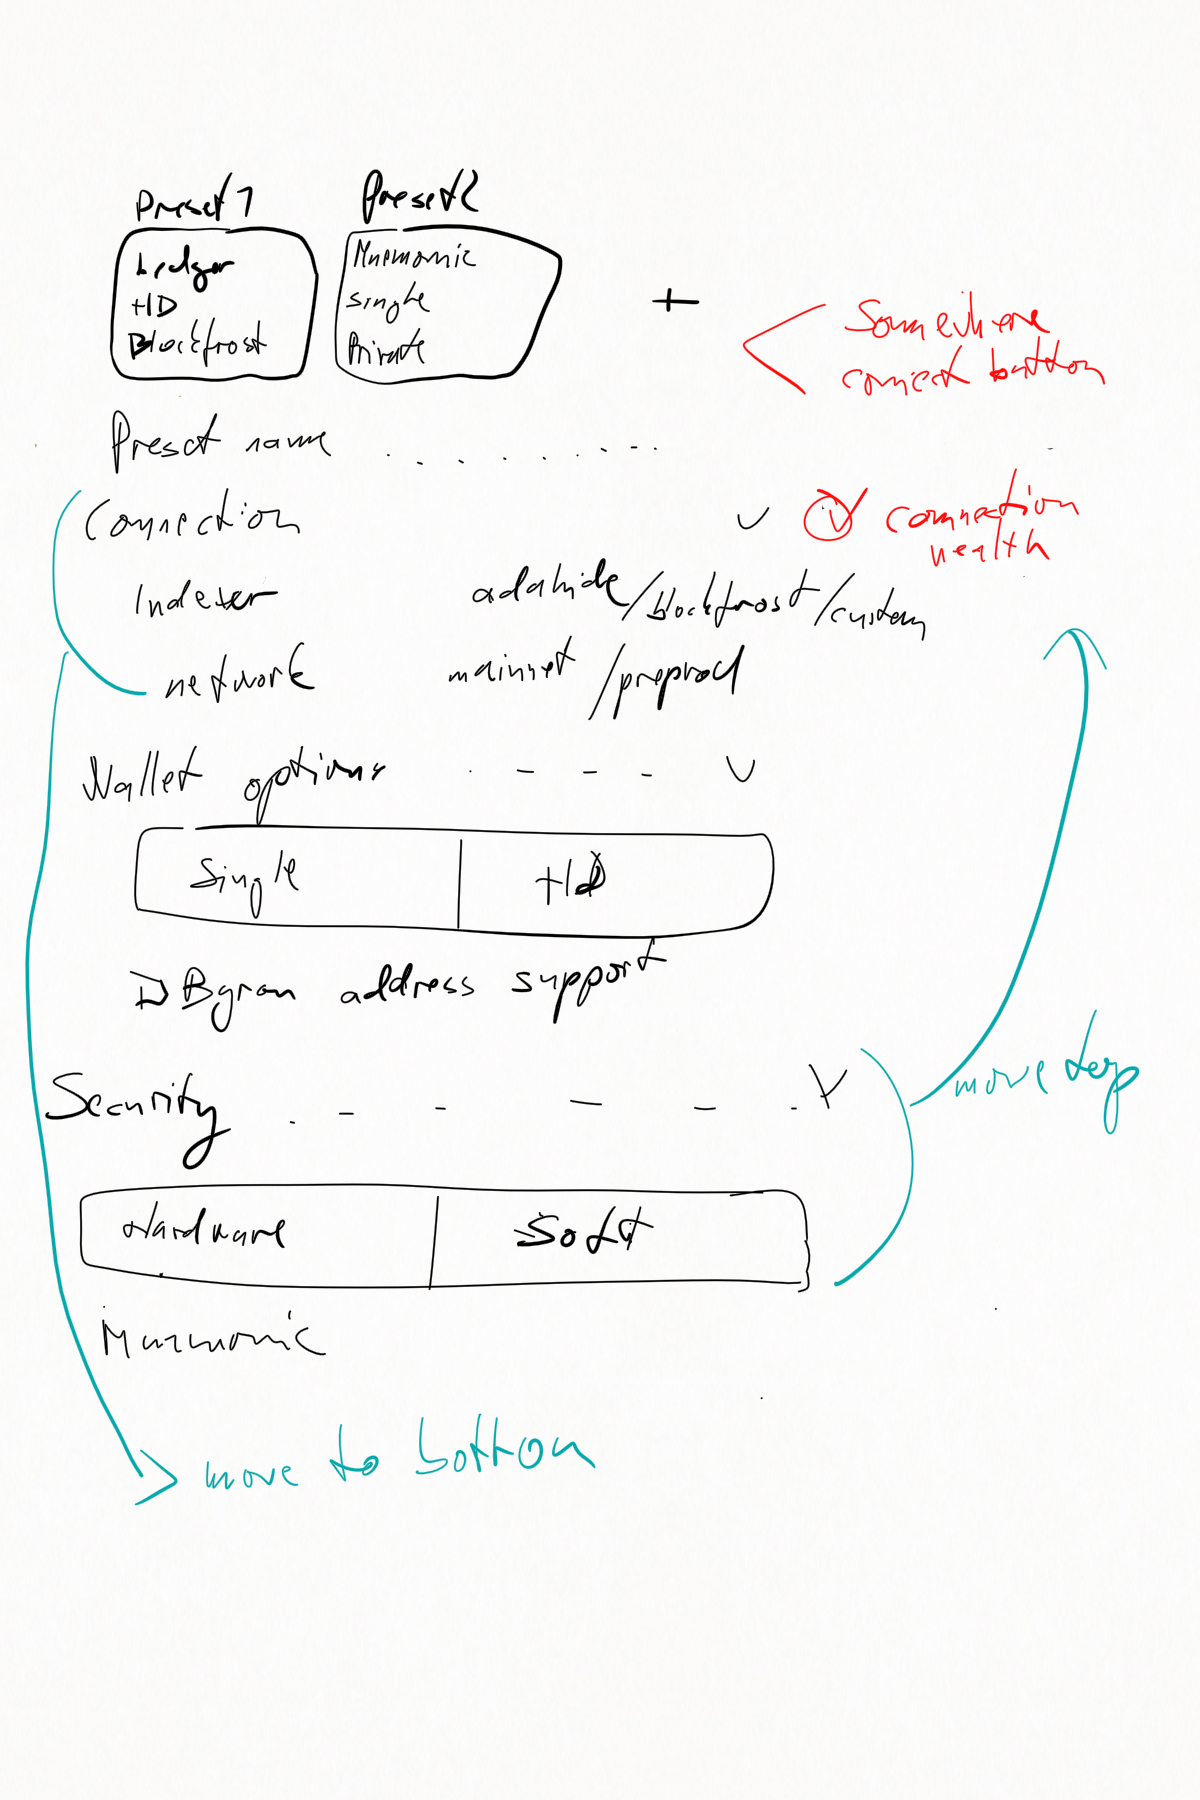 Preset 1 Preset 2
Ledger
HD
Blockfrost
Mnemonic
single
Private
+
Somewhere
connect button
Preset name
Connection
connection
health
Indexer adahide/blockfrost/custom
network mainnet/preprod
Wallet options
Single HD
Byron address support
Security
move top
Hardware Soft
Mnemonic
move to bottom